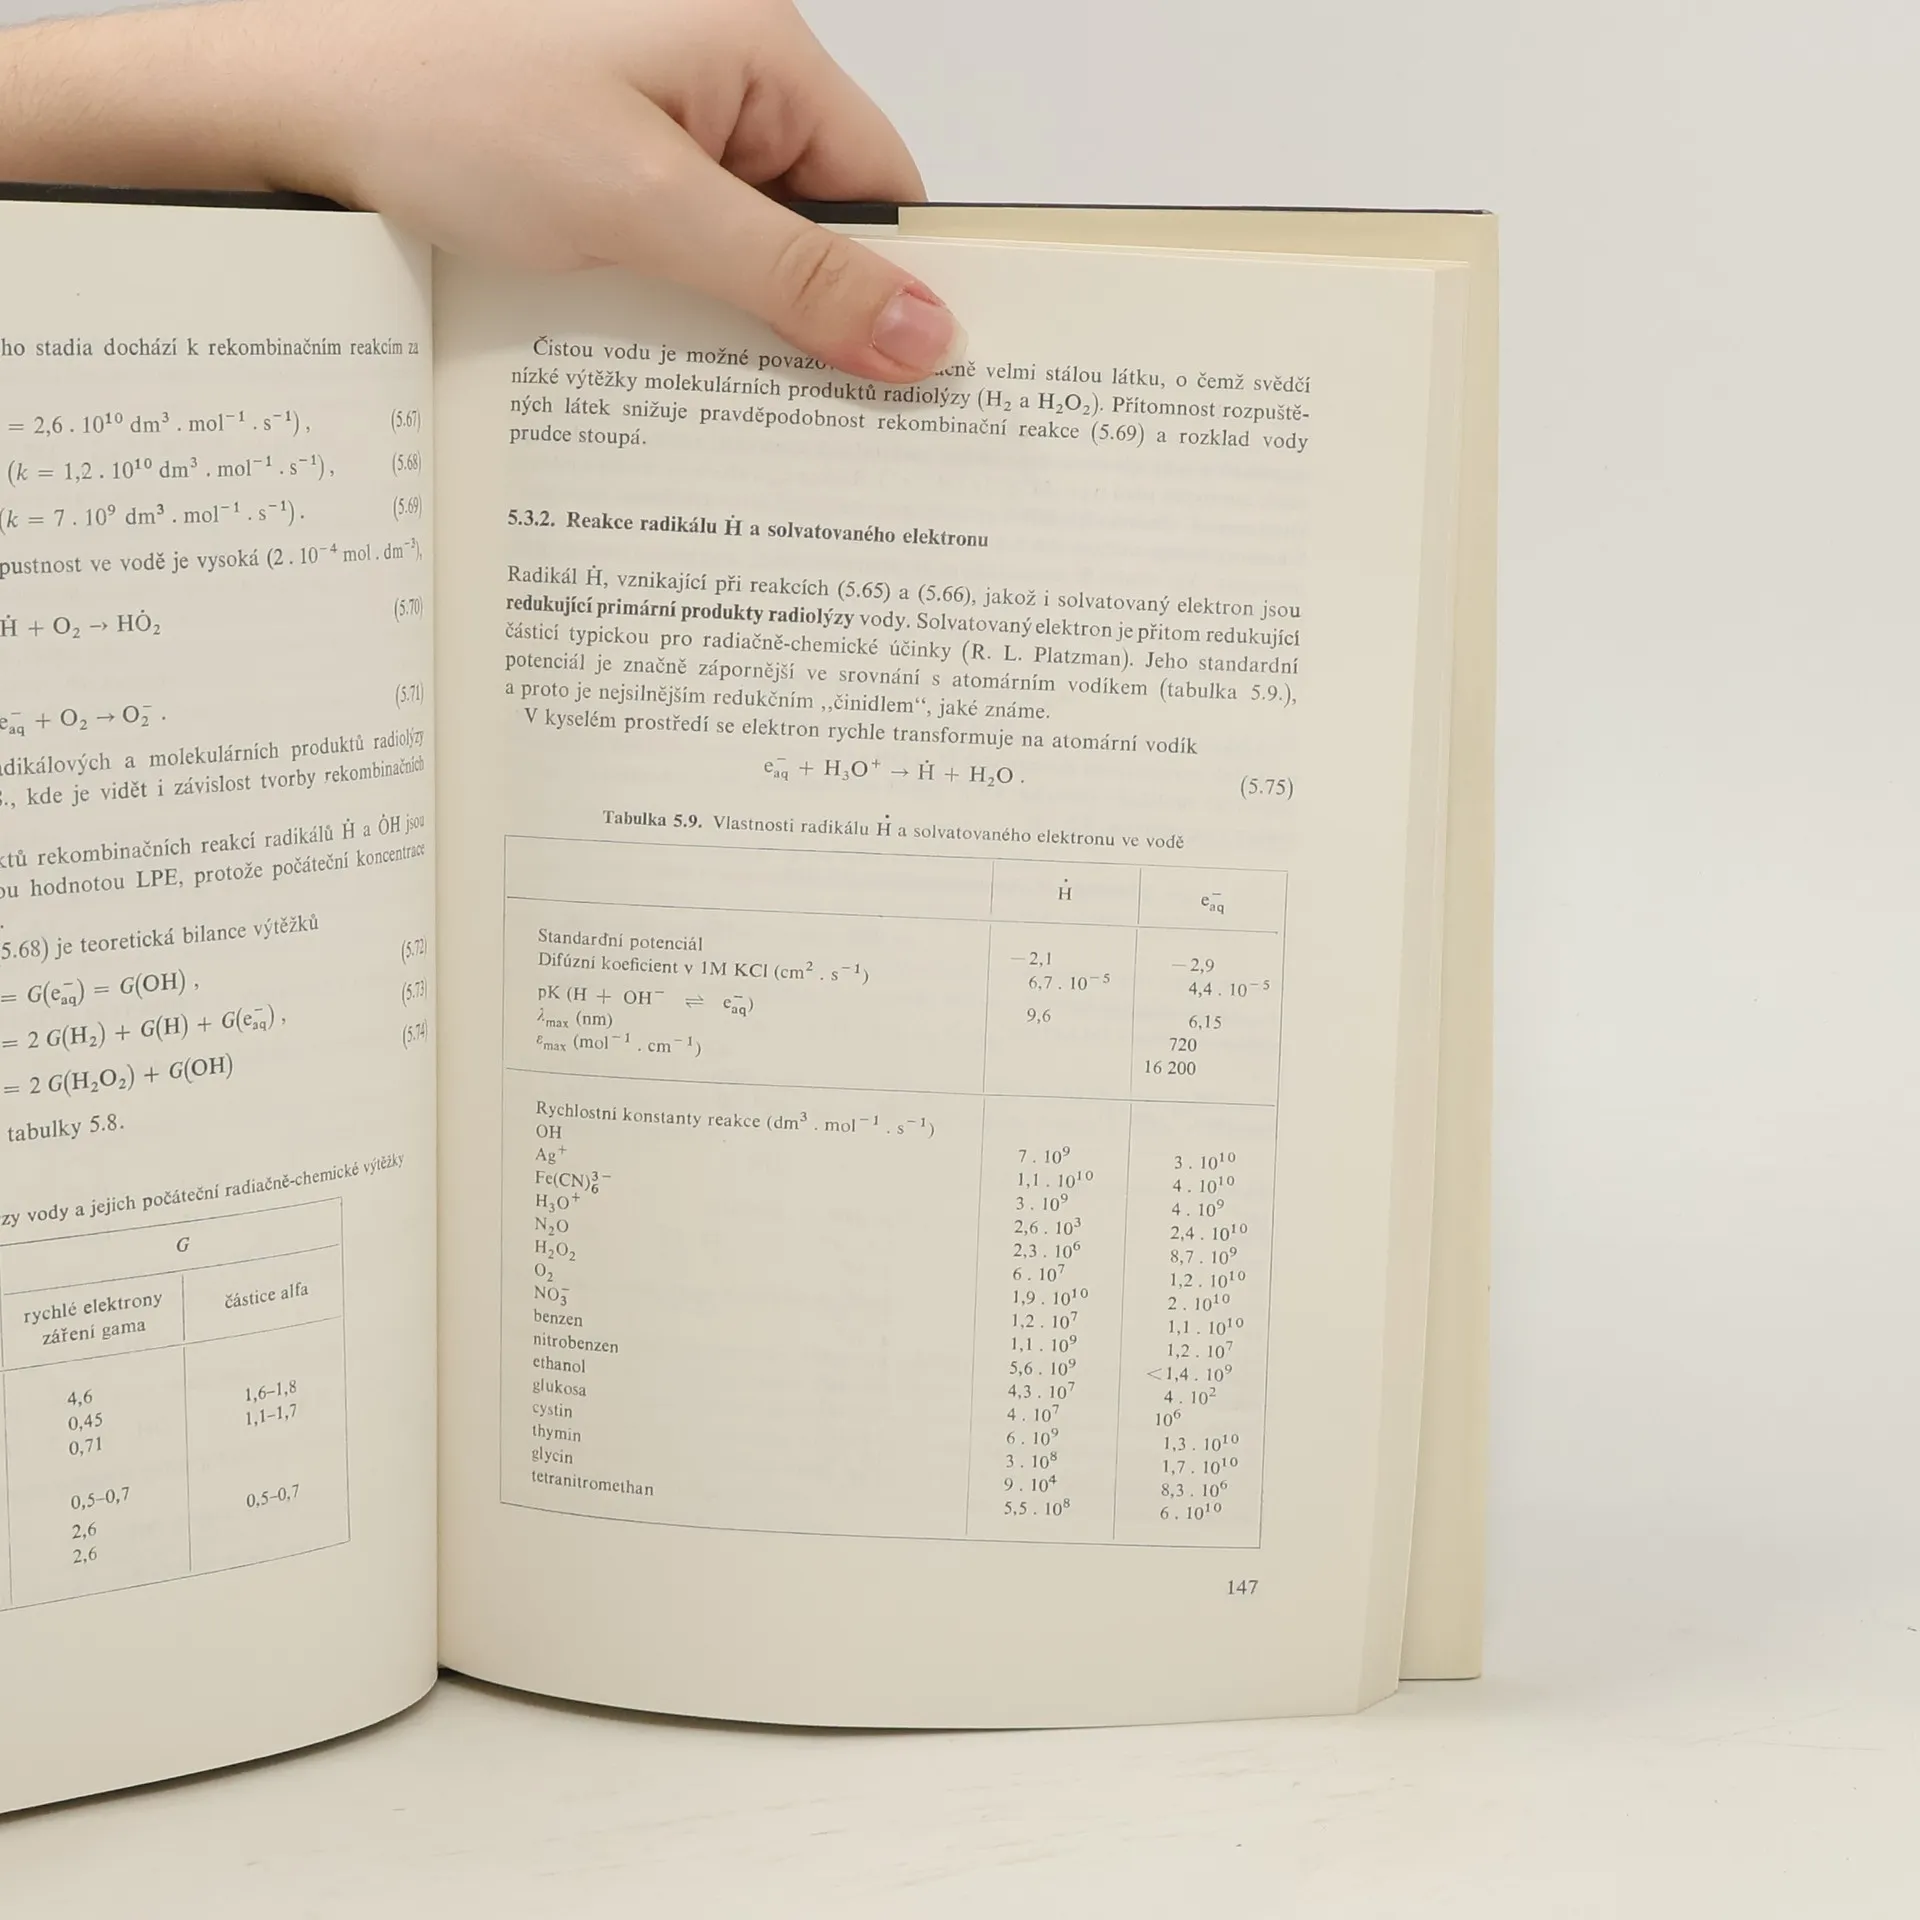 ho stadia dochází k rekombinačním reakcím za
= 2,6 . 10¹⁰ dm³ . mol⁻¹ . s⁻¹), (5.67)
(k = 1,2 . 10¹⁰ dm³ . mol⁻¹ . s⁻¹), (5.68)
(k = 7 . 10⁹ dm³ . mol⁻¹ . s⁻¹). (5.69)
pustnost ve vodě je vysoká (2 . 10⁻⁴ mol . dm⁻³),
Ḣ + O₂ → HȮ₂ (5.70)
e⁻aq + O₂ → O₂⁻ . (5.71)
dikálových a molekulárních produktů radiolýzy
., kde je vidět i závislost tvorby rekombinačních
ktů rekombinačních reakcí radikálů Ḣ a ȮH jsou
ou hodnotou LPE, protože počáteční koncentrace
.
5.68) je teoretická bilance výtěžků
= G(e⁻aq) = G(OH) , (5.72)
= 2 G(H₂) + G(H) + G(e⁻aq) , (5.73)
= 2 G(H₂O₂) + G(OH) (5.74)
tabulky 5.8.
zy vody a jejich počáteční radiačně-chemické výtěžky
G
rychlé elektrony částice alfa
záření gama
4,6 1,6–1,8
0,45 1,1–1,7
0,71
0,5–0,7 0,5–0,7
2,6
2,6
Čistou vodu je možné velmi stálou látku, o čemž svědčí
nízké výtěžky molekulárních produktů radiolýzy (H₂ a H₂O₂). Přítomnost rozpuště-
ných látek snižuje pravděpodobnost rekombinační reakce (5.69) a rozklad vody
prudce stoupá.
5.3.2. Reakce radikálu Ḣ a solvatovaného elektronu
Radikál Ḣ, vznikající při reakcích (5.65) a (5.66), jakož i solvatovaný elektron jsou
redukující primární produkty radiolýzy vody. Solvatovaný elektron je přitom redukující
částicí typickou pro radiačně-chemické účinky (R. L. Platzman). Jeho standardní
potenciál je značně zápornější ve srovnání s atomárním vodíkem (tabulka 5.9.),
a proto je nejsilnějším redukčním „činidlem“, jaké známe.
V kyselém prostředí se elektron rychle transformuje na atomární vodík
e⁻aq + H₃O⁺ → Ḣ + H₂O . (5.75)
Tabulka 5.9. Vlastnosti radikálu Ḣ a solvatovaného elektronu ve vodě
Ḣ e⁻aq
Standardní potenciál −2,1 −2,9
Difúzní koeficient v 1M KCl (cm² . s⁻¹) 6,7 . 10⁻⁵ 4,4 . 10⁻⁵
pK (H + OH⁻ ⇌ e⁻aq) 9,6 6,15
λmax (nm) 720
εmax (mol⁻¹ . cm⁻¹) 16 200
Rychlostní konstanty reakce (dm³ . mol⁻¹ . s⁻¹)
OH 7 . 10⁹ 3 . 10¹⁰
Ag⁺ 1,1 . 10¹⁰ 4 . 10¹⁰
Fe(CN)₆³⁻ 3 . 10⁹ 4 . 10⁹
H₃O⁺ 2,6 . 10³ 2,4 . 10¹⁰
N₂O 2,3 . 10⁶ 8,7 . 10⁹
H₂O₂ 6 . 10⁷ 1,2 . 10¹⁰
O₂ 1,9 . 10¹⁰ 2 . 10¹⁰
NO₃⁻ 1,2 . 10⁷ 1,1 . 10¹⁰
benzen 1,1 . 10⁹ 1,2 . 10⁷
nitrobenzen 5,6 . 10⁹ <1,4 . 10⁹
ethanol 4,3 . 10⁷ 4 . 10²
glukosa 4 . 10⁷ 10⁶
cystin 6 . 10⁹ 1,3 . 10¹⁰
thymin 3 . 10⁸ 1,7 . 10¹⁰
glycin 9 . 10⁴ 8,3 . 10⁶
tetranitromethan 5,5 . 10⁸ 6 . 10¹⁰
147